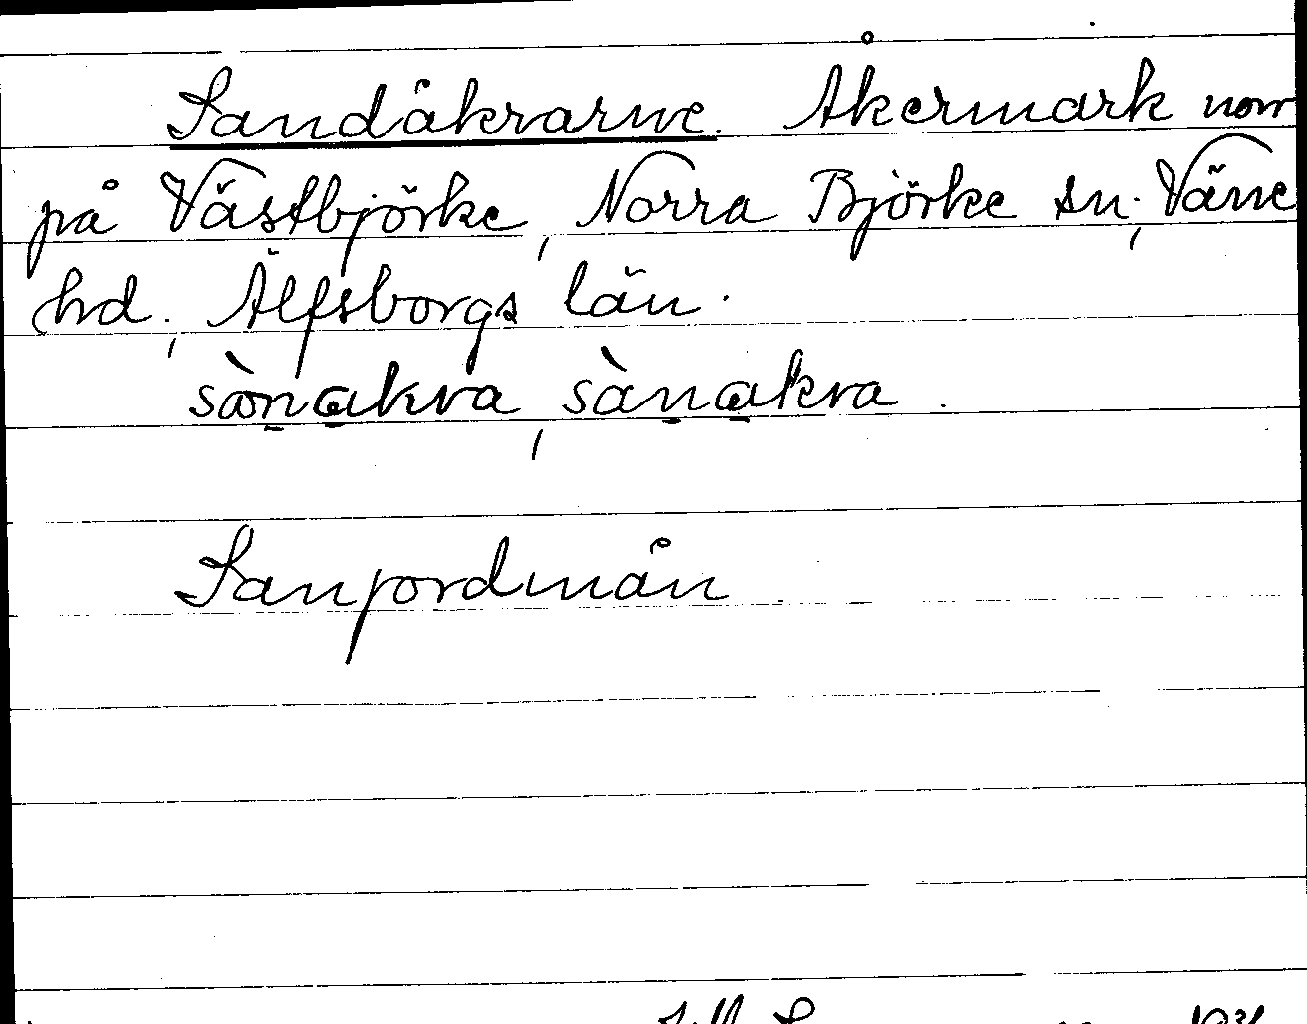 Sandåkrarne. Åkermark norr
på Västbjörke, Norra Björke sn., Väne
hd., Älfsborgs län.
sànakra, sànakra.
Sanjordmån